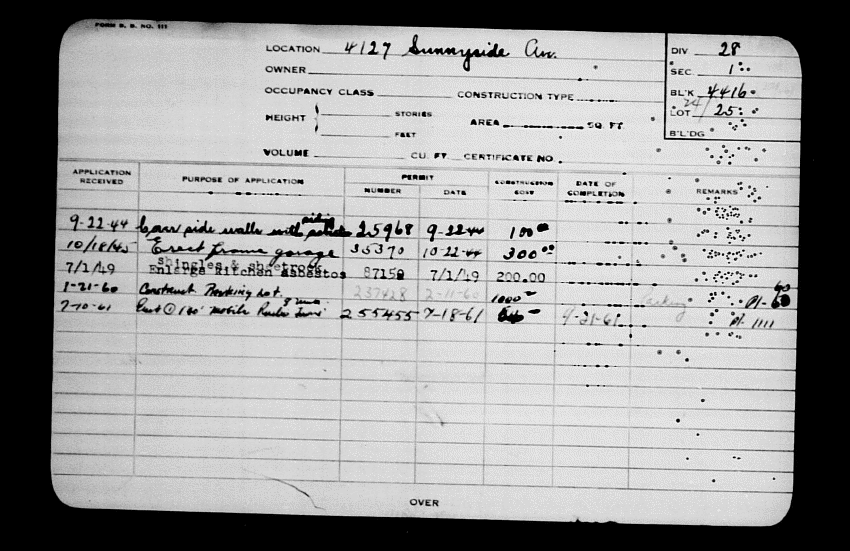 FORM B. B. NO. 111
LOCATION 4127 Sunnyside Av.
DIV 28
OWNER
SEC. 1
OCCUPANCY CLASS CONSTRUCTION TYPE
BL'K 4416
24/
LOT 25
HEIGHT STORIES
AREA SQ. FT.
FEET
B'LDG
VOLUME CU. FT. CERTIFICATE NO.
APPLICATION RECEIVED PURPOSE OF APPLICATION PERMIT NUMBER DATE CONSTRUCTION COST DATE OF COMPLETION REMARKS
siding
9-22-44 Cover side walls with 25968 9-22-44 100
10/18/45 Erect frame garage 35370 10-22-44 300 00
shingles & sheetrock
7/1/49 Enlarge kitchen asbestos 87159 7/1/49 200.00
1-21-60 Construct Parking Lot. 237428 2-11-60 1000 Parking Pl-60
7-10-61 Erect 1 180' Mobile Radio 255455 7-18-61 9-21-61 Pl-1111
OVER